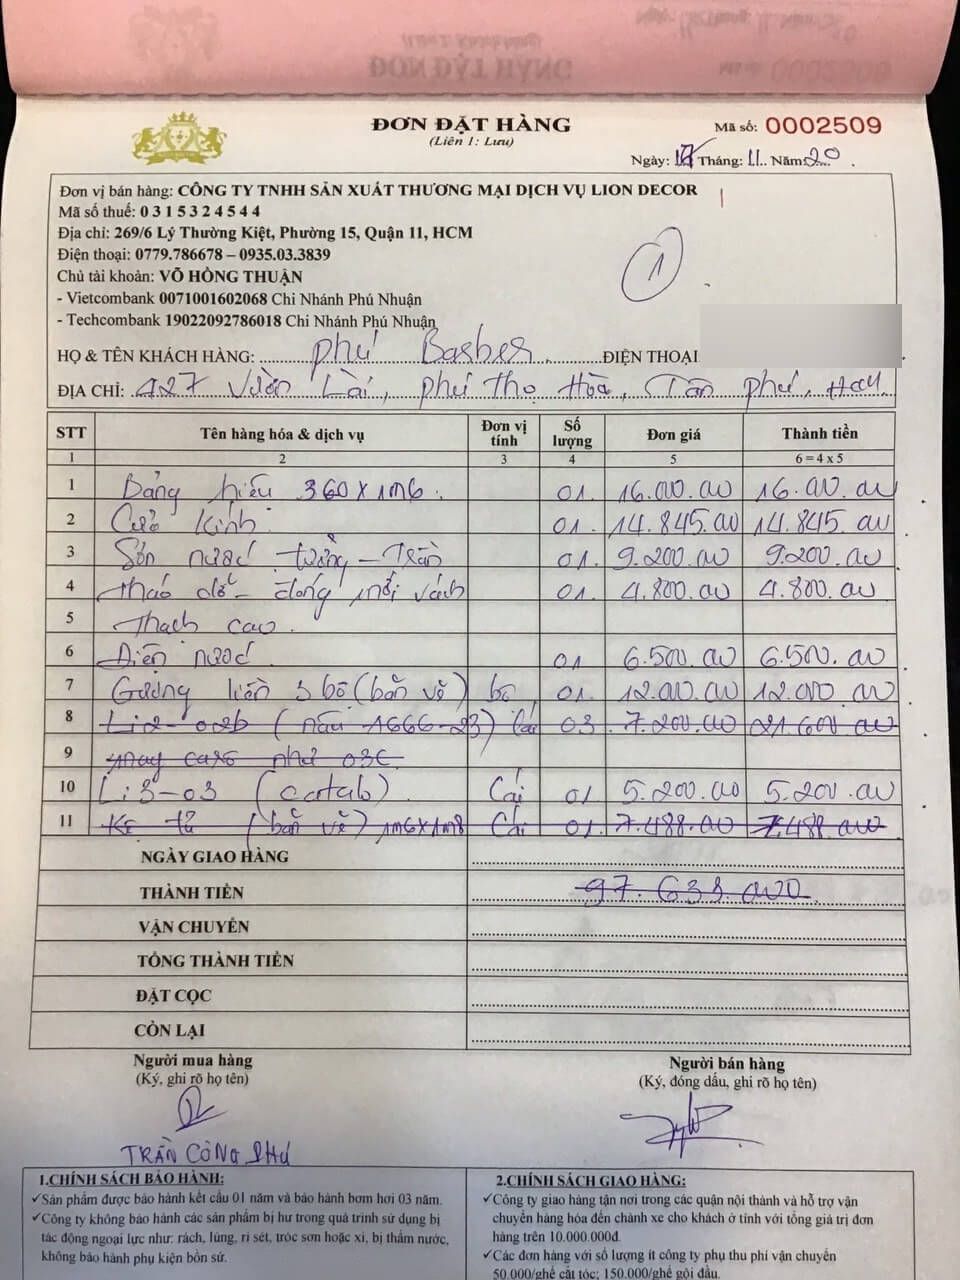 ĐƠN ĐẶT HÀNG
0002509
ĐƠN ĐẶT HÀNG
(Liên 1: Lưu)
Mã số: 0002509
Ngày: Tháng: 11 Năm 20
Đơn vị bán hàng: CÔNG TY TNHH SẢN XUẤT THƯƠNG MẠI DỊCH VỤ LION DECOR
Mã số thuế: 0 3 1 5 3 2 4 5 4 4
Địa chỉ: 269/6 Lý Thường Kiệt, Phường 15, Quận 11, HCM
Điện thoại: 0779.786678 – 0935.03.3839
Chủ tài khoản: VÕ HỒNG THUẬN
- Vietcombank 0071001602068 Chi Nhánh Phú Nhuận
- Techcombank 19022092786018 Chi Nhánh Phú Nhuận
1
HỌ & TÊN KHÁCH HÀNG: Phú Barber ĐIỆN THOẠI
ĐỊA CHỈ: 427 Vườn Lài, Phú Thọ Hòa, Tân Phú, HCM
STT Tên hàng hóa & dịch vụ Đơn vị tính Số lượng Đơn giá Thành tiền
1 2 3 4 5 6 = 4 x 5
1 Bảng hiệu 360 x 1m6 01 16.000.000 16.000.000
2 Cửa kính 01 14.845.000 14.845.000
3 Sơn nước tường – Trần 01 9.200.000 9.200.000
4 Tháo dỡ – đóng mới vách 01 4.800.000 4.800.000
5 Thạch cao
6 Điện nước 01 6.500.000 6.500.000
7 Gương liền 3 bô (bản vẽ) bộ 01 12.000.000 12.000.000
8 Li2-02b (nâu 1666-23) Cái 03 7.200.000 21.600.000
9 may caro như 03C
10 Li3-03 (catab) Cái 01 5.200.000 5.200.000
11 Kệ tủ (bản vẽ) 1m6x1m8 Cái 01 7.488.000 7.488.000
NGÀY GIAO HÀNG
THÀNH TIỀN 97.633.000
VẬN CHUYỂN
TỔNG THÀNH TIỀN
ĐẶT CỌC
CÒN LẠI
Người mua hàng
(Ký, ghi rõ họ tên)
TRẦN CÔNG PHÚ
Người bán hàng
(Ký, đóng dấu, ghi rõ họ tên)
1.CHÍNH SÁCH BẢO HÀNH:
✓Sản phẩm được bảo hành kết cấu 01 năm và bảo hành bơm hơi 03 năm.
✓Công ty không bảo hành các sản phẩm bị hư trong quá trình sử dụng bị
tác động ngoại lực như: rách, lủng, rỉ sét, tróc sơn hoặc xi, bị thấm nước,
không bảo hành phụ kiện bồn sứ.
2.CHÍNH SÁCH GIAO HÀNG:
✓Công ty giao hàng tận nơi trong các quận nội thành và hỗ trợ vận
chuyển hàng hóa đến chành xe cho khách ở tỉnh với tổng giá trị đơn
hàng trên 10.000.000đ.
✓Các đơn hàng với số lượng ít công ty phụ thu phí vận chuyển
50.000/ghế cắt tóc; 150.000/ghế gội đầu.